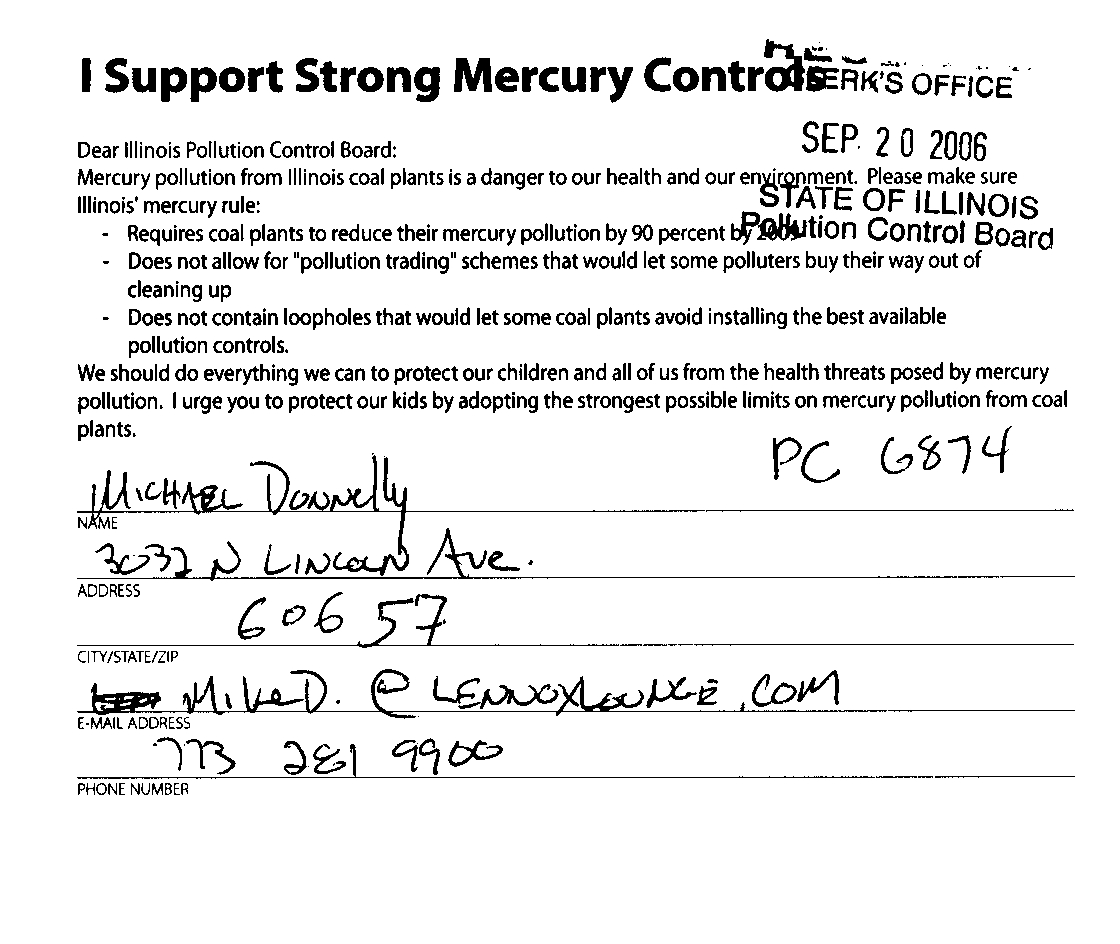 I Support Strong Mercury Controls
CLERK'S OFFICE
SEP. 20 2006
STATE OF ILLINOIS
Pollution Control Board
Dear Illinois Pollution Control Board:
Mercury pollution from Illinois coal plants is a danger to our health and our environment. Please make sure
Illinois' mercury rule:
- Requires coal plants to reduce their mercury pollution by 90 percent by
- Does not allow for "pollution trading" schemes that would let some polluters buy their way out of
cleaning up
- Does not contain loopholes that would let some coal plants avoid installing the best available
pollution controls.
We should do everything we can to protect our children and all of us from the health threats posed by mercury
pollution. I urge you to protect our kids by adopting the strongest possible limits on mercury pollution from coal
plants.
PC 6874
MICHAEL DONNElly
NAME
3032 N LINCOLN AVe.
ADDRESS
60657
CITY/STATE/ZIP
MikeD. @ LENNOXLOUNGE.COM
E-MAIL ADDRESS
773 281 9900
PHONE NUMBER